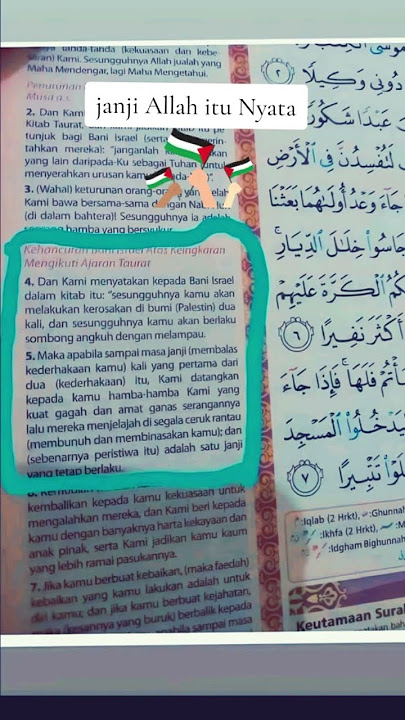 tanda-tanda (kekuasaan dan kebe-
saran) Kami. Sesungguhnya Allah jualah yang
Maha Mendengar, lagi Maha Mengetahui.
janji Allah itu Nyata
2. Dan Kami
Kitab Taurat, dan Kami jadikan Kitab itu pe-
tunjuk bagi Bani Israel (serta
tahkan mereka): "janganlah
yang lain daripada-Ku sebagai Tuhan untuk
menyerahkan urusan kamu
3. (Wahai) keturunan orang-orang yang telah
Kami bawa bersama-sama dengan
(di dalam bahtera)! Sesungguhnya ia adalah
seorang hamba yang bersyukur.
Kehancuran Bani Israel Atas Keingkaran
Mengikuti Ajaran Taurat
4. Dan Kami menyatakan kepada Bani Israel
dalam kitab itu: "sesungguhnya kamu akan
melakukan kerosakan di bumi (Palestin) dua
kali, dan sesungguhnya kamu akan berlaku
sombong angkuh dengan melampau.
5. Maka apabila sampai masa janji (membalas
kederhakaan kamu) kali yang pertama dari
dua (kederhakaan) itu, Kami datangkan
kepada kamu hamba-hamba Kami yang
kuat gagah dan amat ganas serangannya
lalu mereka menjelajah di segala ceruk rantau
(membunuh dan membinasakan kamu); dan
(sebenarnya peristiwa itu) adalah satu janji
yang tetap berlaku.
6. Kemudian
kembalikan kepada kamu kekuasaan untuk
mengalahkan mereka, dan Kami beri kepada
kamu dengan banyaknya harta kekayaan dan
anak pinak, serta Kami jadikan kamu kaum
yang lebih ramai pasukannya.
7. Jika kamu berbuat kebaikan, (maka faedah)
kebaikan yang kamu lakukan adalah untuk
diri kamu; dan jika kamu berbuat kejahatan,
(kesannya yang buruk) berbalik kepada
apabila sampai masa
دُونِى وَكِيلًا ٢
عَبْدًا شَكُورًا
لَتُفْسِدُنَّ فِى ٱلْأَرْضِ
جَآءَ وَعْدُ أُولَىٰهُمَا بَعَثْنَا
جَاسُوا۟ خِلَٰلَ ٱلدِّيَارِ
ٱلْكَرَّةَ عَلَيْهِمْ
أَكْثَرَ نَفِيرًا ٦
فَلَهَا ۚ فَإِذَا جَآءَ
ٱلْمَسْجِدَ
تَتْبِيرًا ٧
:Iqlab (2 Hrkt), :Ghunnah
:Ikhfa (2 Hrkt),
:Idgham Bighunnah
Keutamaan Sura